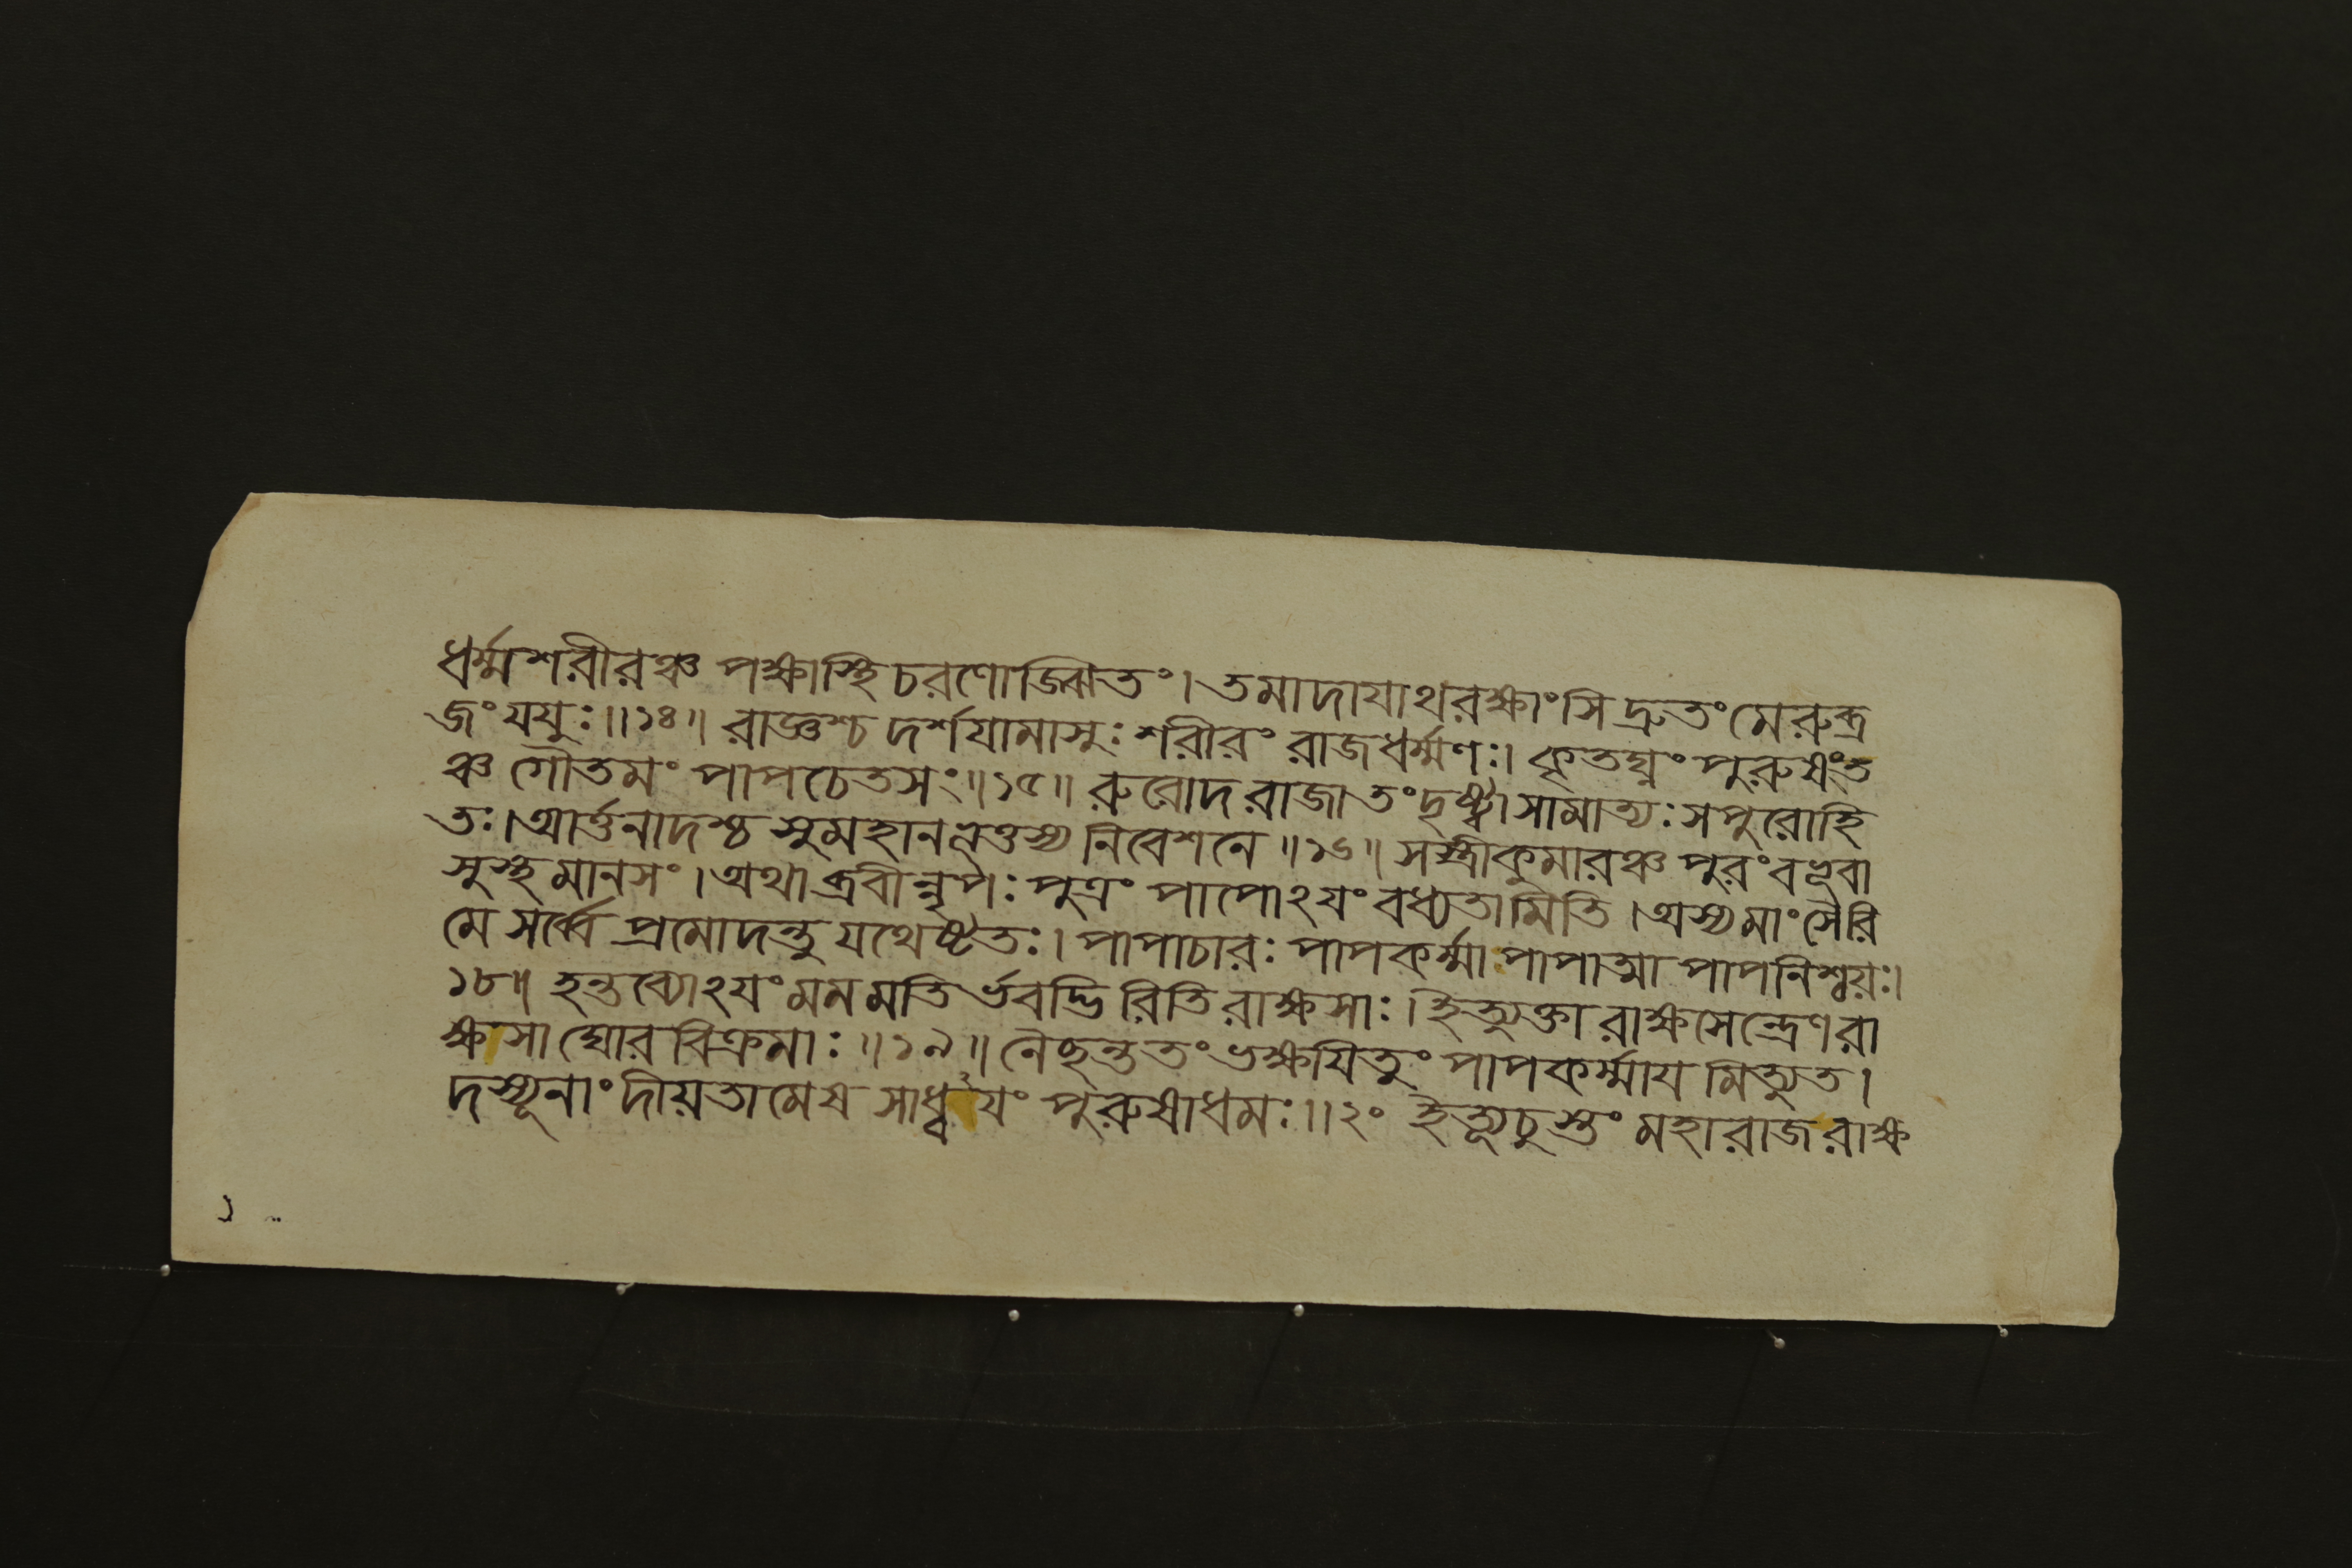 ধর্ম্মশরীরঞ্চ পক্ষাস্থিচরণোজ্ঝিতং। তমাদাযাথরক্ষাংসি দ্রুতং মেরুব্র
জং যযুঃ॥১৪॥ রাজ্ঞশ্চ দর্শযামাসুঃ শরীরং রাজধর্ম্মণঃ। কৃতঘ্নং পুরুষংত
ঞ্চ গৌতমং পাপচেতসং॥১৫॥ রুরোদ রাজা তং দৃষ্ট্বা সামাত্যঃ সপুরোহি
তঃ। আর্ত্তনাদশ্চ সুমহানভূত্তস্য নিবেশনে॥১৬॥ সস্ত্রীকুমারঞ্চ পুরং বভূবা
সুস্থমানসং। অথাব্রবীন্নৃপঃ পুত্রং পাপোঽযং বধ্যতামিতি। অস্যমাংসৈরি
মে সর্ব্বে প্রমোদন্তু যথেষ্টতঃ। পাপাচারঃ পাপকর্ম্মা পাপাত্মা পাপনিশ্চয়ঃ।
১৮॥ হন্তব্যোঽযং মম মতি র্ভবদ্ভিরিতি রাক্ষসাঃ। ইত্যুক্তা রাক্ষসেন্দ্রেণ রা
ক্ষসা ঘোরবিক্রমাঃ॥১৯॥ নৈছন্ত তং ভক্ষযিতুং পাপকর্ম্মাযমিত্যুত।
দস্যূনাং দীয়তামেষ সাধ্বযং পুরুষাধমঃ॥২০ ইত্যূচুস্তং মহারাজ রাক্ষ